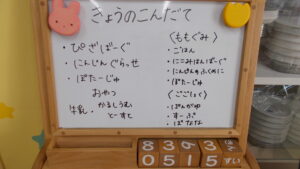 きょうのこんだて
・ぴざばーぐ
・にんじんぐらっせ
・ぽたーじゅ
おやつ
牛乳・かるしうむ
とーすと
〈ももぐみ〉
・ごはん
・にこみはんばーぐ
・にんじんのふくめに
・ぽたーじゅ
〈ごごしょく〉
・ぱんがゆ
・すーぷ
・ばなな
0 5 1 5 すい